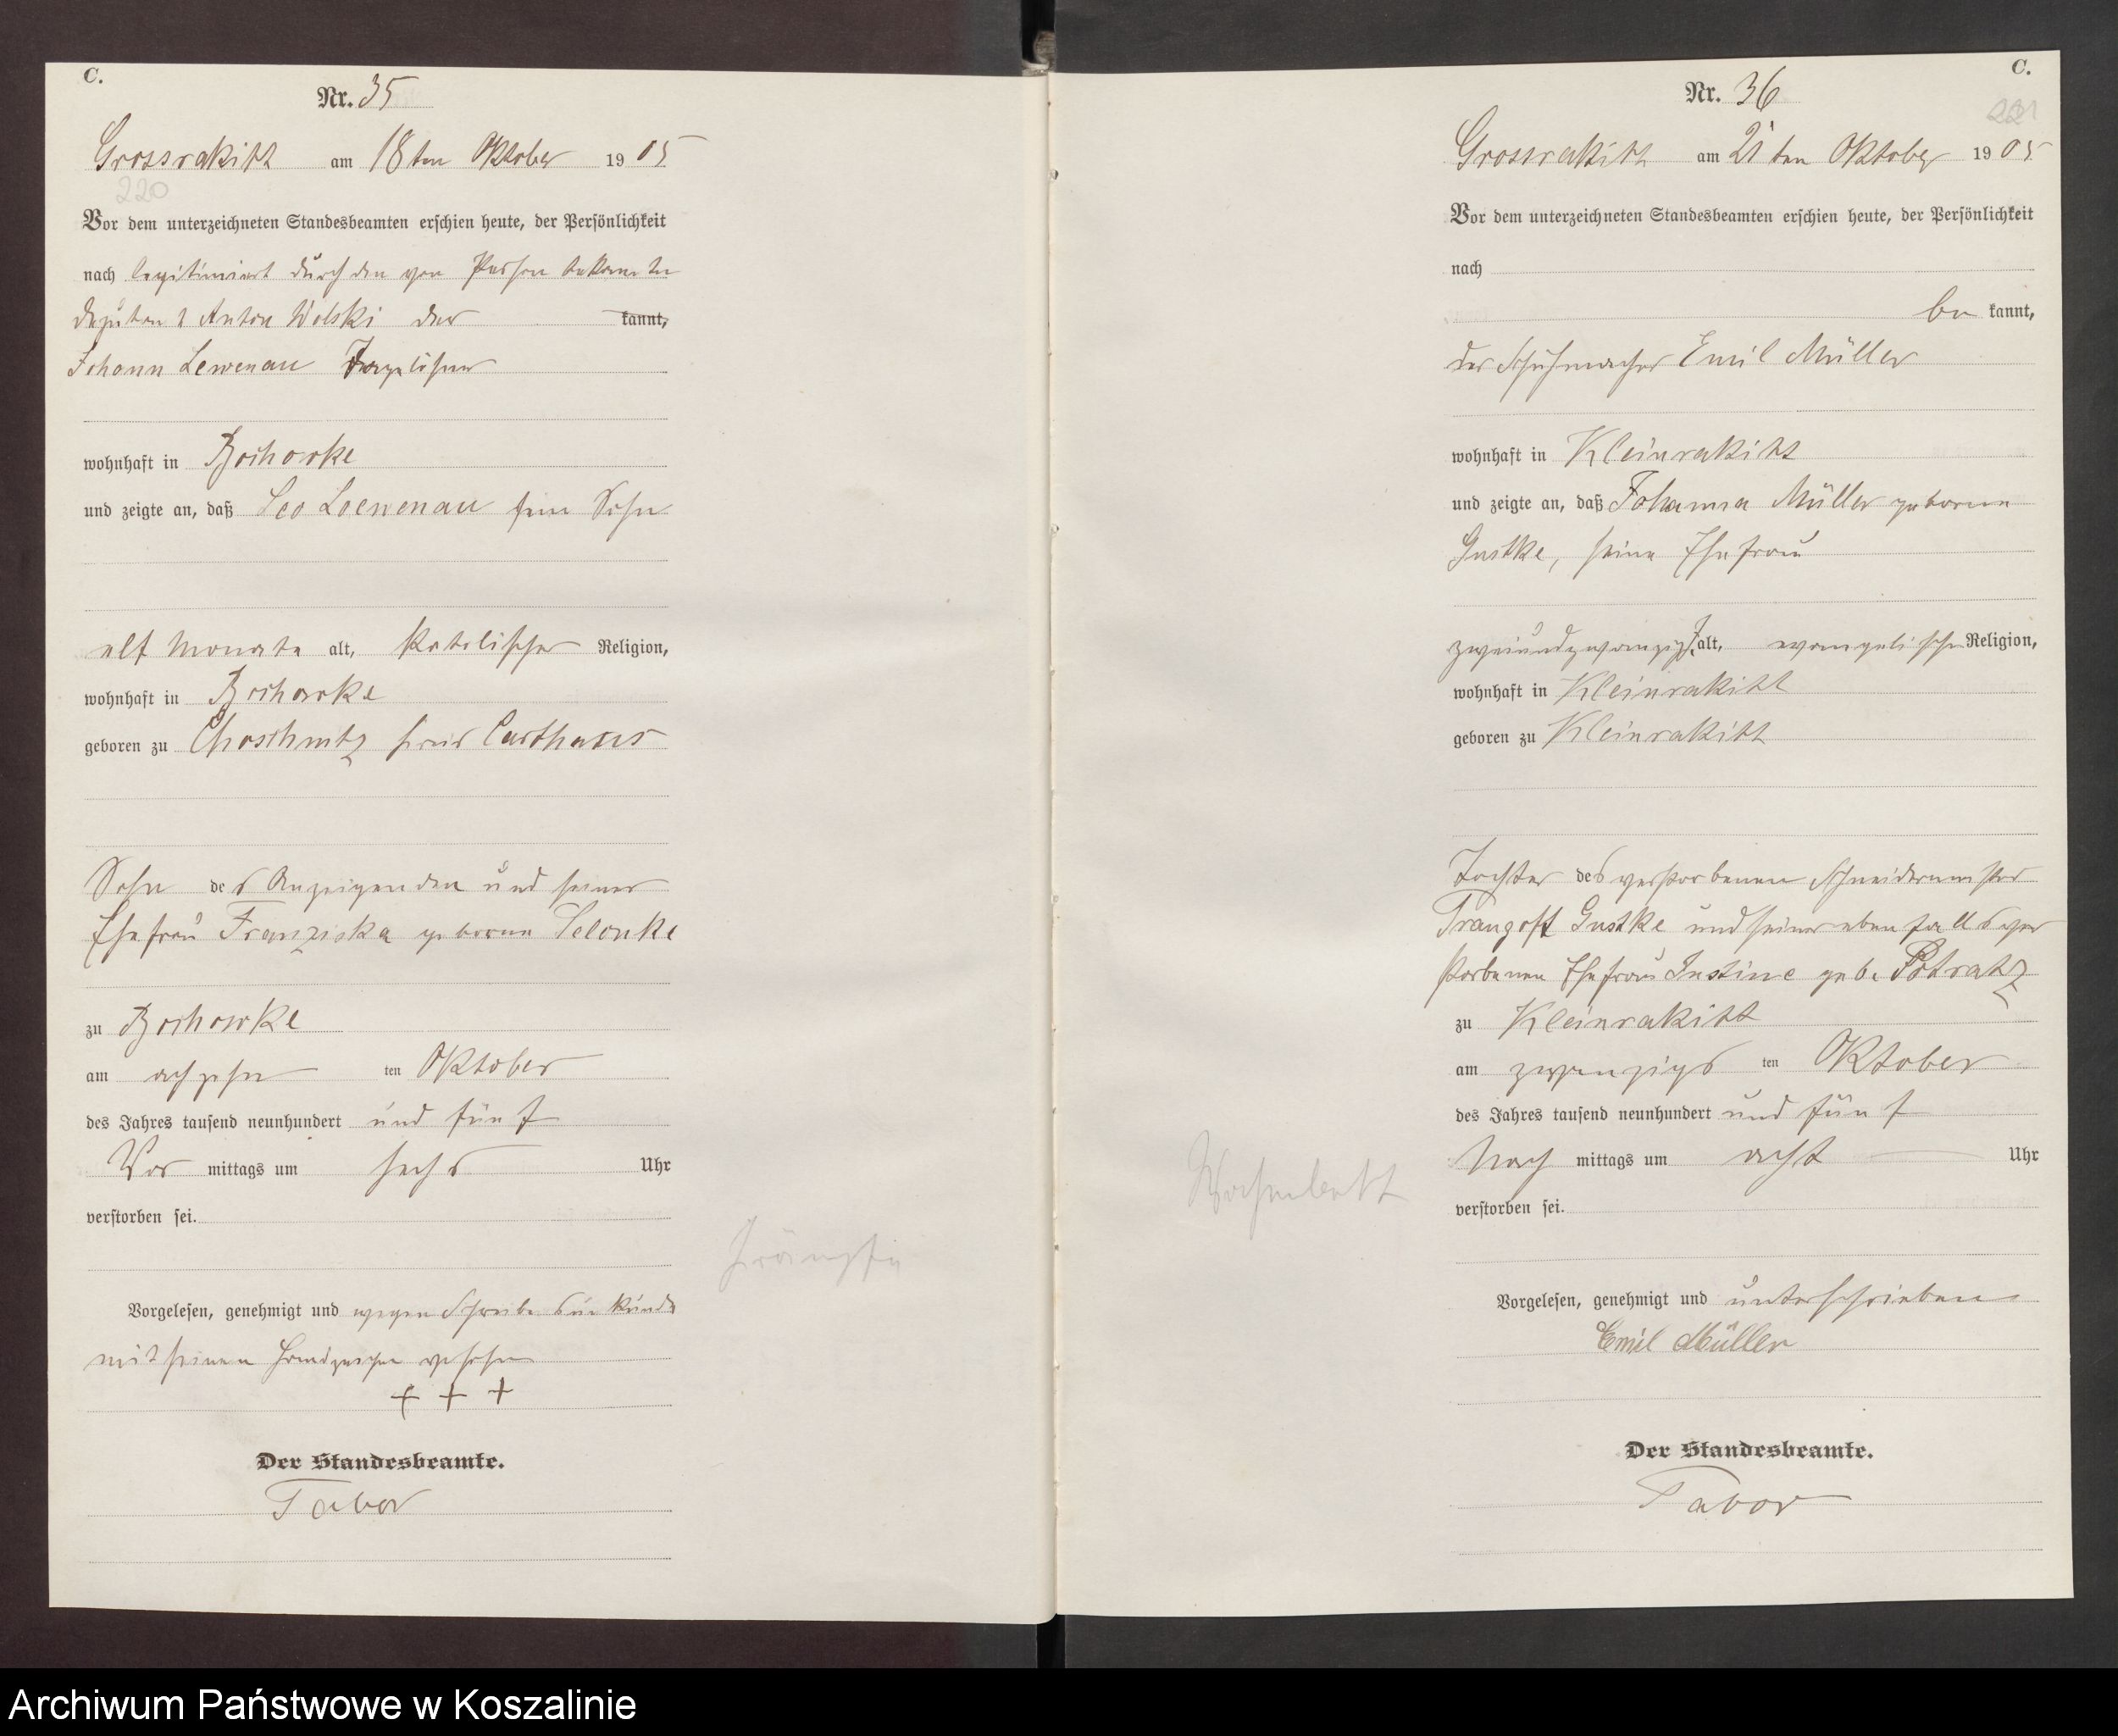 C.
Nr. 35
Grossrakitt am 18ten Oktober 1905
220
Vor dem unterzeichneten Standesbeamten erschien heute, der Persönlichkeit
nach legitimiert durch den von Person bekannten
Deputant Anton Wolski der kannt,
Johann Lewenau Tagelöhner
wohnhaft in Bochowke
und zeigte an, daß Leo Loewenau sein Sohn
elf Monate alt, katolischer Religion,
wohnhaft in Bochowke
geboren zu Choschnitz Kreis Carthaus
Sohn des Anzeigenden und seiner
Ehefrau Franziska geborene Selonke
zu Bochowke
am achzehn ten Oktober
des Jahres tausend neunhundert und fünf
Vor mittags um sechs Uhr
verstorben sei.
Krämpfe
Vorgelesen, genehmigt und wegen Schreibensunkunde
mit seinen Handzeichen versehen
+ + +
Der Standesbeamte.
Tabor
C.
Nr. 36
221
Grossrakitt am 21ten Oktober 1905
Vor dem unterzeichneten Standesbeamten erschien heute, der Persönlichkeit
nach
be kannt,
der Schuhmacher Emil Müller
wohnhaft in Kleinrakitt
und zeigte an, daß Johanna Müller geborene
Gustke, seine Ehefrau
zweiundzwanzig J. alt, evangelischer Religion,
wohnhaft in Kleinrakitt
geboren zu Kleinrakitt
Tochter des verstorbenen Schneidermeister
Traugott Gustke und seiner ebenfalls ver
storbenen Ehefrau Justine geb. Potratz
zu Kleinrakitt
am zwanzigs ten Oktober
des Jahres tausend neunhundert und fünf
Nach mittags um acht Uhr
verstorben sei.
Wochenbett
Vorgelesen, genehmigt und unterschrieben
Emil Müller
Der Standesbeamte.
Tabor
Archiwum Państwowe w Koszalinie